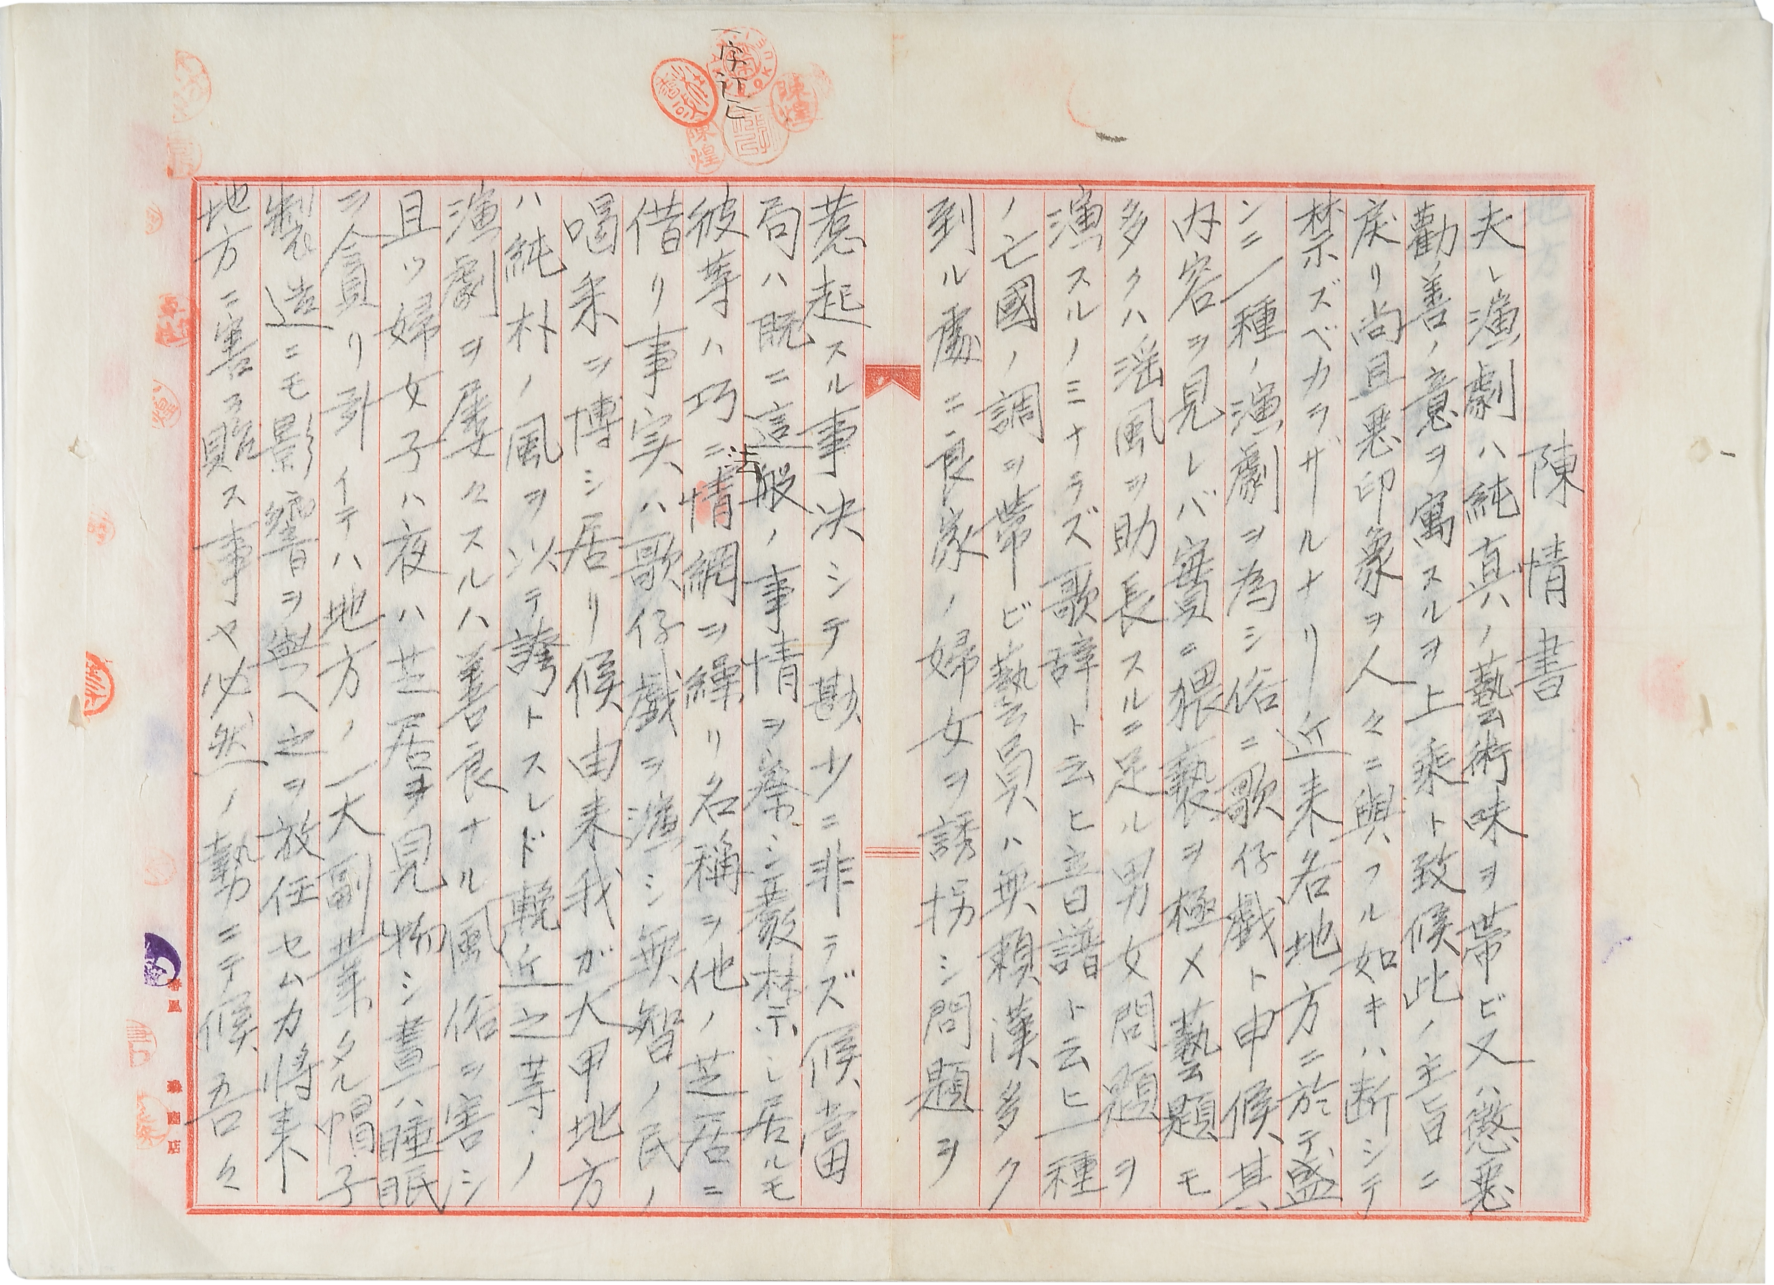 陳情書
夫レ演劇ハ純真ノ藝術味ヲ帯ビ又ハ懲悪
勸善ノ意ヲ寓スルヲ上乘ト致候此ノ主旨ニ
戻リ尚且悪印象ヲ人々ニ與フル如キハ断シテ
禁ズベカラザルナリ近来各地方ニ於テ盛
ンニ一種ノ演劇ヲ為シ俗ニ歌仔戯ト申候其
内容ヲ見レバ實ニ猥褻ヲ極メ藝題モ
多クハ淫風ヲ助長スルニ足ル男女問題ヲ
演スルノミナラズ歌辞ト云ヒ音譜ト云ヒ一種
ノ亡國ノ調ヲ帯ビ藝員ハ無頼漢多ク
到ル處ニ良家ノ婦女ヲ誘拐シ問題ヲ
惹起スル事决シテ尠少ニ非ラズ候當
局ハ既ニ這般ノ事情ヲ察シ嚴禁シ居ルモ
彼等ハ巧ニ法網ヲ繰リ名稱ヲ他ノ芝居ニ
借リ事実ハ歌仔戯ヲ演シ無智ノ民ノ
喝采ヲ博シ居リ候由来我ガ大甲地方
ハ純朴ノ風ヲ以テ誇トスレド輓近之等ノ
演劇ヲ屡々スルハ善良ナル風俗ヲ害シ
且ツ婦女子ハ夜ハ芝居ヲ見物シ晝ハ睡眠
ヲ貪リ引イテハ地方ノ一大副業タル帽子
製造ニモ影響ヲ與へ之ヲ放任セムカ将来
地方ニ害ヲ貽ス事ヤ必然ノ勢ニテ候吾々
一字訂正
陳煌
陳煌